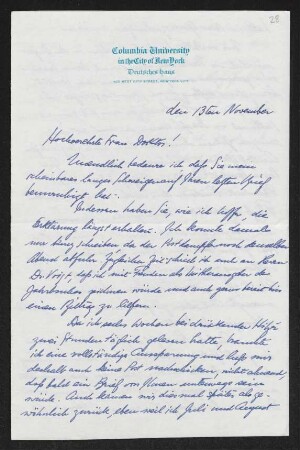 28
Columbia University
in the City of New York
Deutsches Haus
den 13ten November
Hochverehrte Frau Doktor!
Unendlich bedaure ich daß Sie mein
scheinbares langes Schweigen auf Ihren letzten Brief
beunruhigt hat.
Indessen haben Sie, wie ich hoffe, die
Erklärung längst erhalten. Ich konnte damals
nur kurz schreiben da der Postdampfer noch denselben
Abend abfuhr. Zugleicher Zeit schrieb ich auch an Herrn
Dr. Voigt, daß ich mit Freuden als Mitherausgeber des
Jahrbuches zeichnen würde und auch gern bereit bin
einen Beitrag zu liefern.
Da ich sechs Wochen bei drückender Hitze
zwei Stunden täglich gelesen hatte, brauchte
ich eine vollständige Ausspannung und ließ mir
deshalb auch keine Post nachschicken, nicht ahnend,
daß bald ein Brief von Ihnen unterwegs sein
würde. Auch kamen wir diesmal später als ge-
wöhnlich zurück, eben weil ich Juli und August